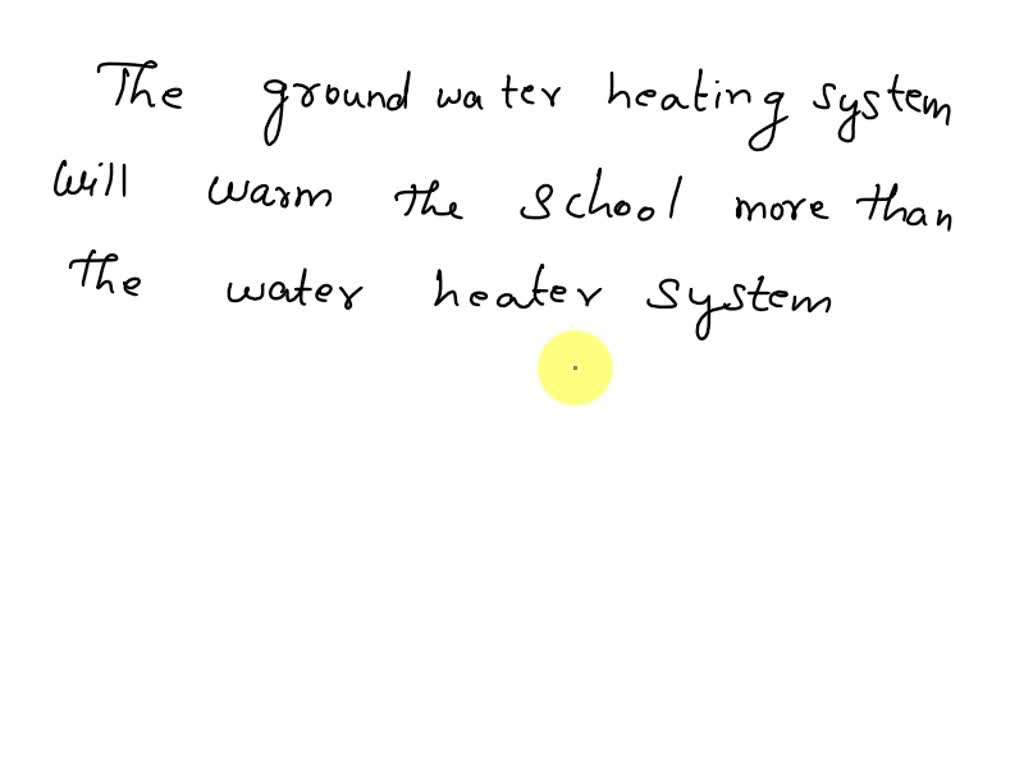 The ground water heating system
will warm the school more than
the water heater system